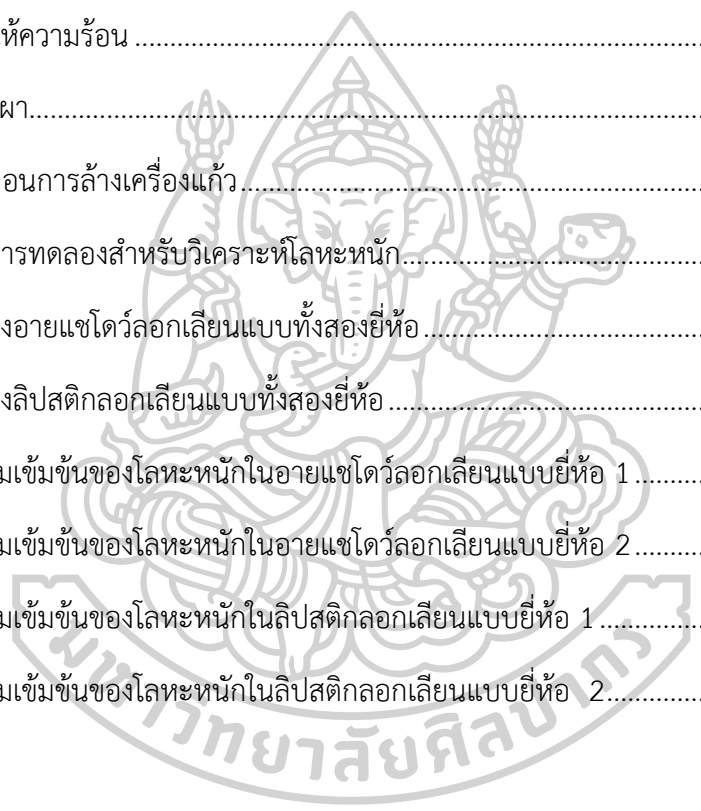 ห้ความร้อน ........................................................................
เผา........................................................................
อนการล้างเครื่องแก้ว........................................................................
ารทดลองสำหรับวิเคราะห์โลหะหนัก........................................................................
งอายแชโดว์ลอกเลียนแบบทั้งสองยี่ห้อ........................................................................
งลิปสติกลอกเลียนแบบทั้งสองยี่ห้อ........................................................................
มเข้มข้นของโลหะหนักในอายแชโดว์ลอกเลียนแบบยี่ห้อ 1..........
มเข้มข้นของโลหะหนักในอายแชโดว์ลอกเลียนแบบยี่ห้อ 2..........
มเข้มข้นของโลหะหนักในลิปสติกลอกเลียนแบบยี่ห้อ 1...............
มเข้มข้นของโลหะหนักในลิปสติกลอกเลียนแบบยี่ห้อ 2..............
มหาวิทยาลัยศิลปากร